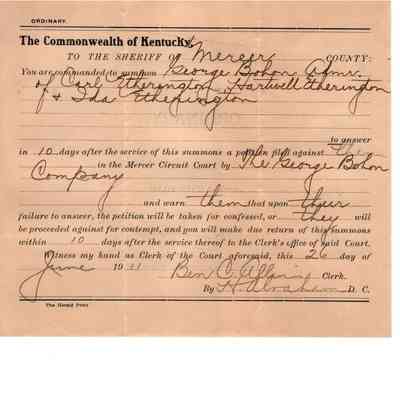 ORDINARY.
The Commonwealth of Kentucky,
TO THE SHERIFF OF Mercer COUNTY:
You are commanded to summon George Bohon Admr.
of Carl Etherington, Hartwell Etherington
& Ida Etherington
to answer
in 10 days after the service of this summons a petition filed against
in the Mercer Circuit Court by The George Bohon
Company
and warn them that upon their
failure to answer, the petition will be taken for confessed, or they will
be proceeded against for contempt, and you will make due return of this summons
within 10 days after the service thereof to the Clerk's office of said Court.
Witness my hand as Clerk of the Court aforesaid, this 26 day of
June 19
Ben C. Clerk.
By D. C.
The Herald Print